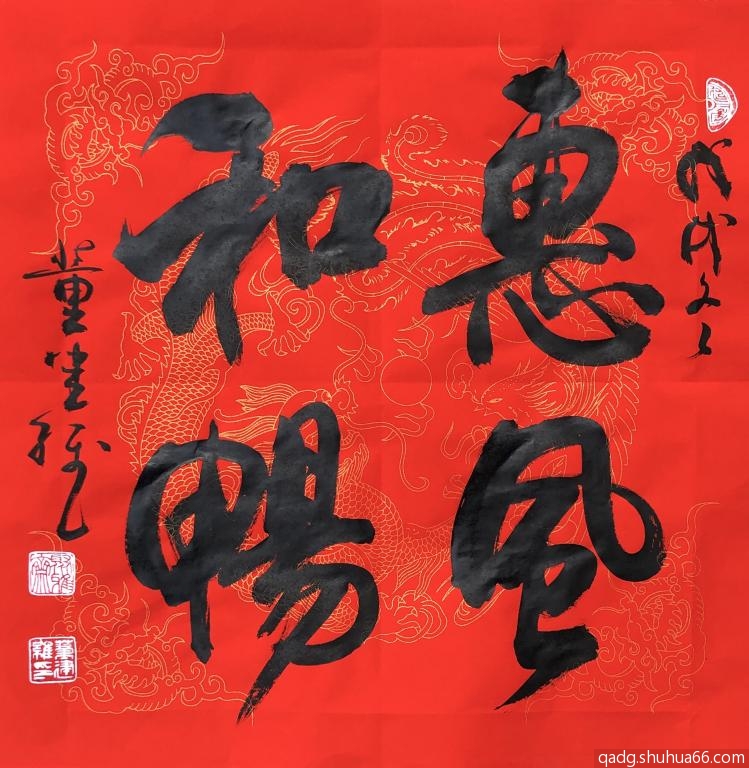 惠風
和暢
戊戌冬
董
qadg.shuhua66.com